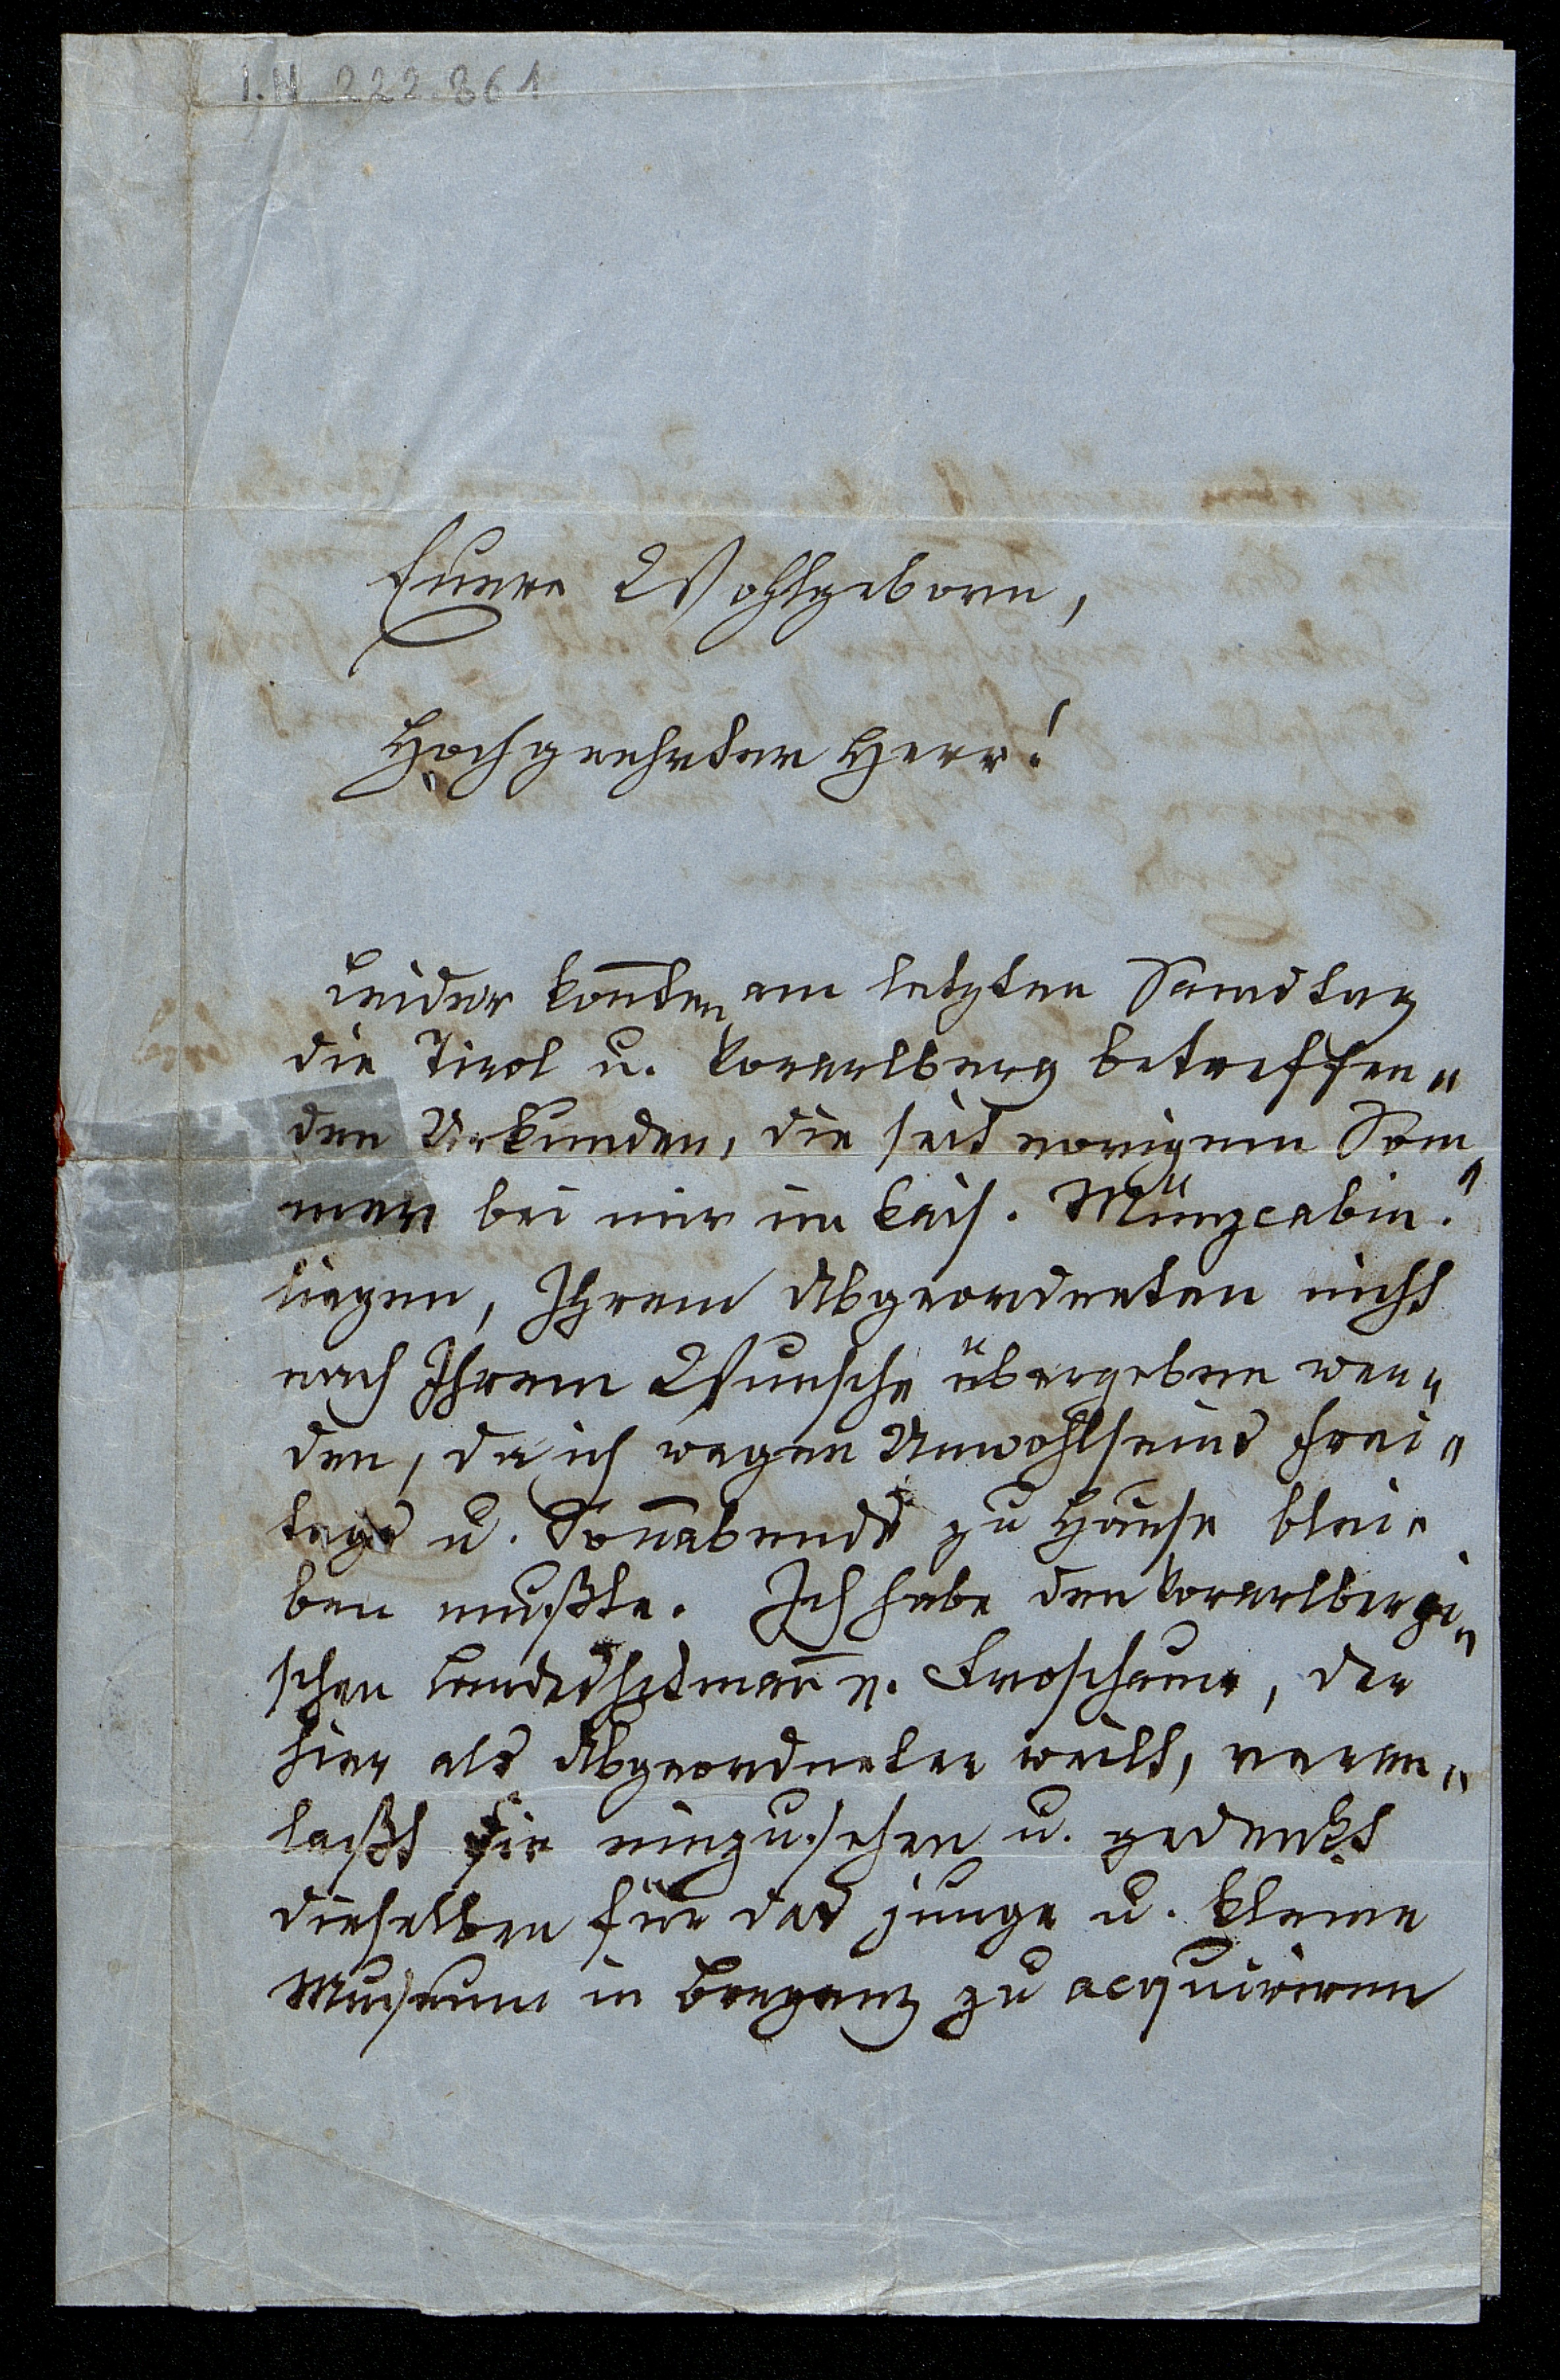 I.N. 222.861
Euere Wohlgeborn,
Hochgeehrter Herr!
Leider kon̄ten am letzten Samstag
die Tirol u. Vorarlberg betreffen„
den Urkunden, die seit vorigem Som„
mer bei mir im kais. Münzcabin.
liegen, Ihrem Abgeordneten nicht
nach Ihrem Wunsche übergeben wer„
den, da ich wegen Unwohlseins Frei„
tags u. Son̄abends zu Hause blei„
ben mußte. Ich habe den Vorarlbergi„
schen Landeshptman̄ v. Froschauer, der
hier als Abgeordneter weilt, veran„
laßt sie einzusehen u. gedenkt
dieselben für das junge u. kleine
Museum in Bregenz zu acquiriren